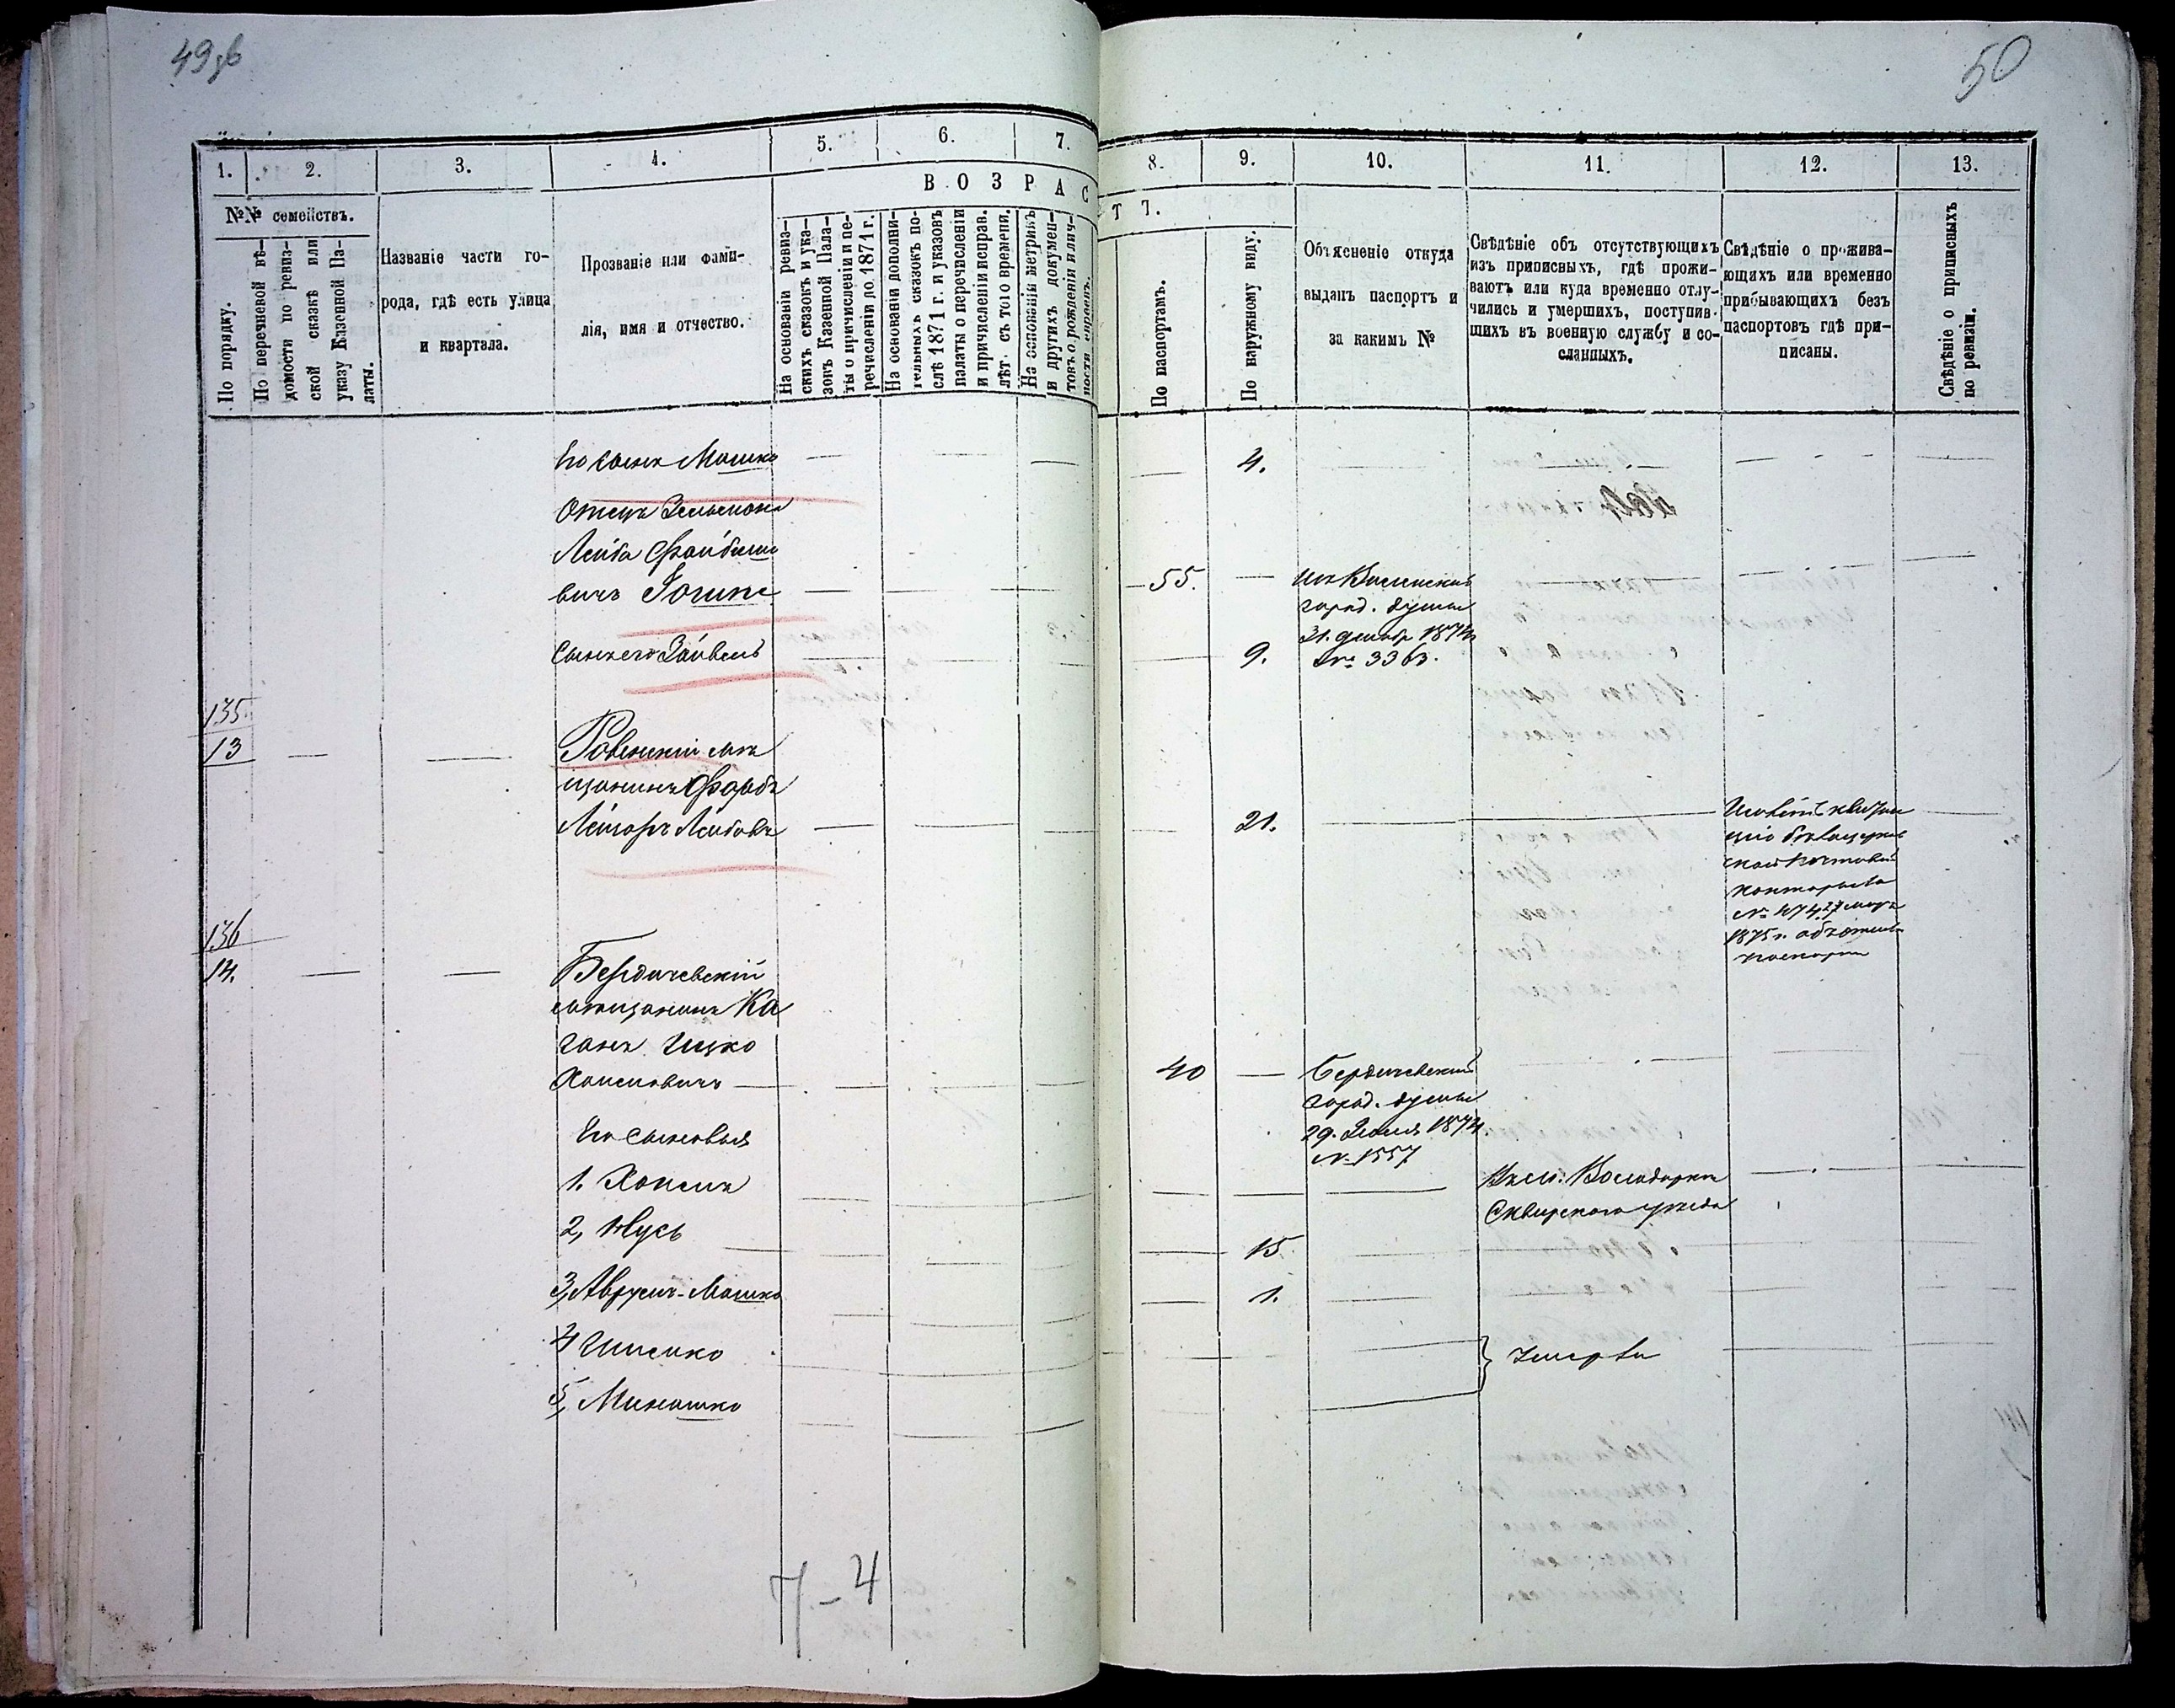 49об
50
1.
2.
3.
4.
5.
6.
7.
8.
9.
10.
11.
12.
13.
ВОЗРАС
ТЪ.
№№ семействъ.
По порядку.
По перечневой вѣ-
домости по ревиз-
ской сказкѣ или
указу Казенной Па-
латы.
Названіе части го-
рода, гдѣ есть улица
и квартала.
Прозваніе или фами-
лія, имя и отчество.
На основаніи ревиз-
скихъ сказокъ и ука-
зовъ Казенной Пала-
ты о причисленіи и пе-
речисленіи до 1871 г.
На основаніи дополни-
тельныхъ сказокъ по-
слѣ 1871 г. и указовъ
палаты о перечисленіи
и причисленіи исправ.
лѣт. съ того времени.
На основаніи метрикъ
и другихъ докумен-
товъ о рожденіи и лич-
ности евреевъ.
По паспортамъ.
По наружному виду.
Объясненіе откуда
выданъ паспортъ и
за какимъ №
Свѣдѣніе объ отсутствующихъ
изъ приписныхъ, гдѣ прожи-
ваютъ или куда временно отлу-
чились и умершихъ, поступив-
шихъ въ военную службу и со-
сланныхъ.
Свѣдѣніе о прожива-
ющихъ или временно
прибывающихъ безъ
паспортовъ гдѣ при-
писаны.
Свѣдѣніе о приписныхъ
по ревизіи.
Его сынъ Мошко
4.
Отецъ
Лейба Файбиши
вичъ
55.
город. думы
31. декабр 1874
№ 3363.
Сынъ его Зайвель
9.
135
13
Ровенскій мѣ
щанинъ Фарбъ
Лейзоръ Лейбовъ
21.
почтовой
конторы за
1875 г.
136
14.
Бердичевскій
мѣщанинъ Ка
ганъ Ицко
Хаимовичъ
40
Бердичевской
город. думы
29. Іюля 1874
№ 1557
Его сыновья
1. Хаимъ
Въ м. Володаркѣ
Сквирскаго уѣзда
2, Нусь
15
3, Аврумъ-Мошко
1.
4
Умерли
5, Минашко
7-4